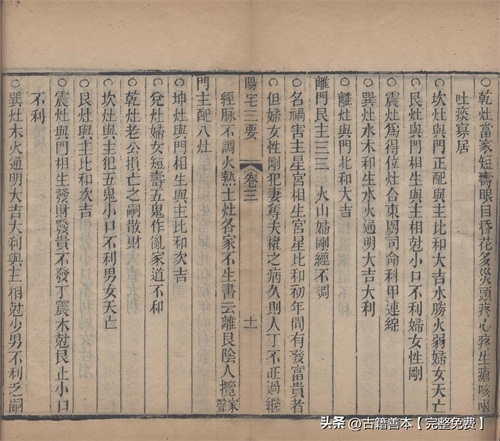 ○乾灶當家短壽眼目昏花多災頭疼心疼生瘡咳嗽
吐痰寡居
○坎灶與門正配與主比和大吉水勝火弱婦女夭亡
○艮灶與門相生與主相尅小口不利婦女性剛
○震灶為得位灶合東厨司命科甲連綿
○巽灶水木和生水火通明大吉大利
○離灶與門北和大吉
離門艮主三三 火山婦剛經不調
○名禍害主星宮相生宮星比和初年間有發富貴者
但婦女性剛犯妻奪夫權之病久則人丁不旺過繼
陽宅三要 卷三 十
經脈不調火熱土灶各家不生書云離艮陰人攪家聲
門主配八灶
○坤灶與門相生與主比和次吉
○兌灶婦女短壽五鬼作亂家道不和
○乾灶老公損亡之嗣散財
○坎灶與主犯五鬼小口不利男女夭亡
○艮灶與門相生與主比和次吉
○震灶與門相生發財發貴不發丁震木尅艮土小口
不利
○巽灶木火通明大吉大利與主相尅少男不利乏嗣
头条 @古籍善本【完整免费】